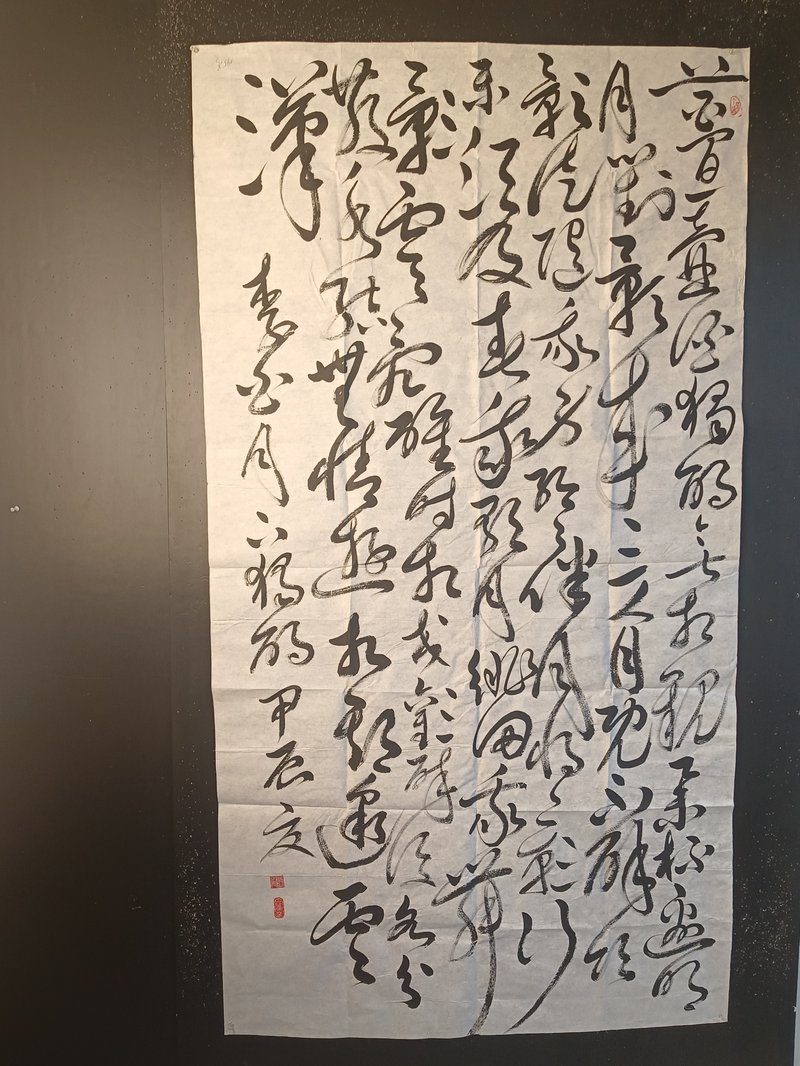 花間一壺酒獨酌無相親舉杯邀明
月對影成三人月既不解飲
影徒隨我身暫伴月將影行
樂須及春我歌月徘徊我舞
影零亂醒時相交歡醉後各分
散永結無情遊相期邈雲
漢
李白月下獨酌 甲辰夏